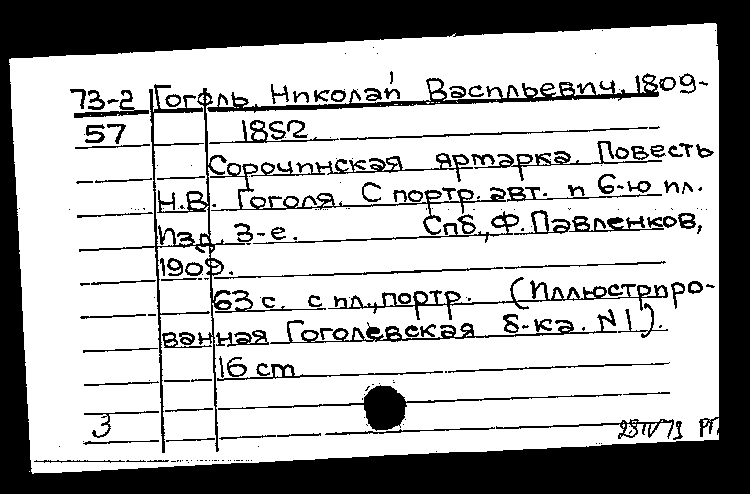 73-2 Гоголь, Николай Васильевич, 1809-
57 1852.
Сорочинская ярмарка. Повесть
Н.В. Гоголя. С портр. авт. и 6-ю ил.
Изд. 3-е. Спб., Ф. Павленков,
1909.
63 с. с ил., портр. (Иллюстриро-
ванная Гоголевская б-ка. N1).
16 cm
3
28 IV 79 РГ